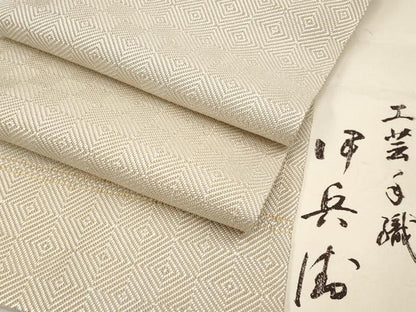 工芸手織
伊兵衛